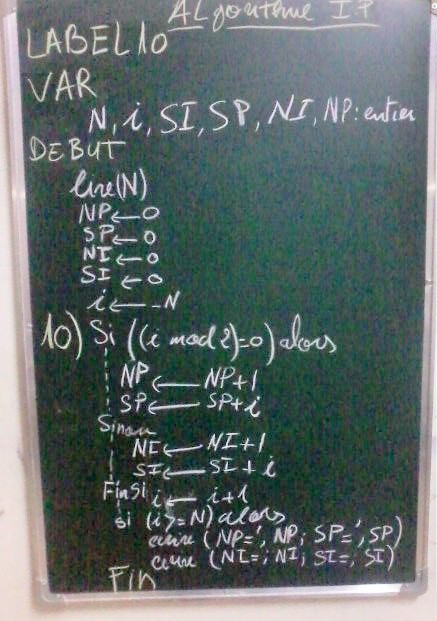 ALgorithme IP
LABEL10
VAR
N, i, SI, SP, NI, NP: entier
DEBUT
lire(N)
NP ← 0
SP ← 0
NI ← 0
SI ← 0
i ← -N
10) Si ((i mod 2)=0) alors
NP ← NP+1
SP ← SP+i
Sinon
NI ← NI+1
SI ← SI+i
FinSi i ← i+1
si (i>=N) alors
ecrire (NP=', NP; SP=', SP)
ecrire (NI=; NI; SI=, SI)
Fin